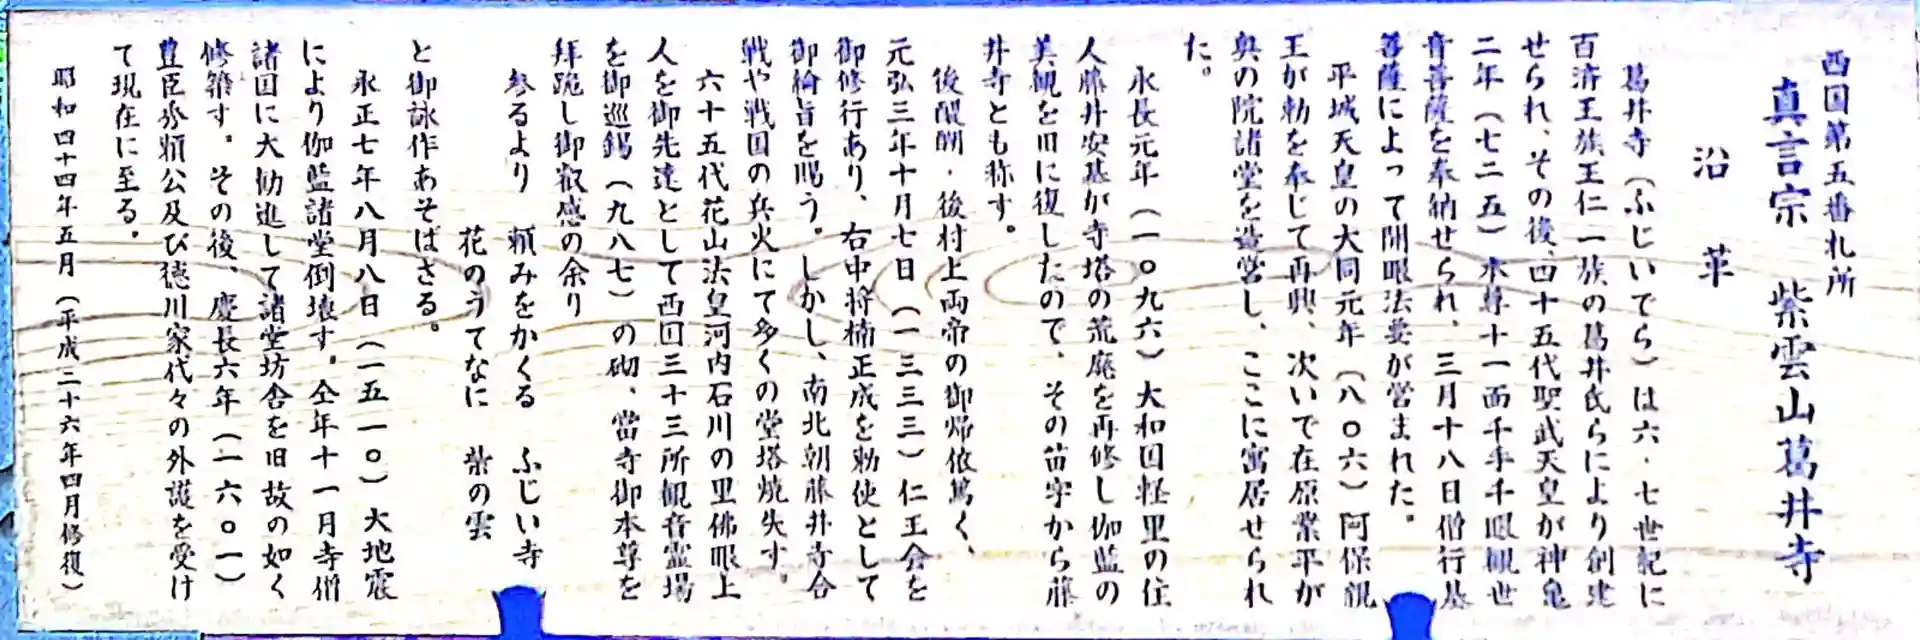 西国第五番札所
真言宗 紫雲山葛井寺
沿革
葛井寺（ふじいでら）は六・七世紀に
百済王族王仁一族の葛井氏らにより創建
せられ、その後、四十五代聖武天皇が神亀
二年（七二五）本尊十一面千手千眼観世
音菩薩を奉納せられ、三月十八日僧行基
菩薩によって開眼法要が営まれた。
平城天皇の大同元年（八〇六）阿保親
王が勅を奉じて再興、次いで在原業平が
奥の院諸堂を造営し、ここに寓居せられ
た。
永長元年（一〇九六）大和国軽里の住
人藤井安基が寺塔の荒廃を再修し伽藍の
美観を旧に復したので、その苗字から藤
井寺とも称す。
後醍醐・後村上両帝の御帰依篤く、
元弘三年十月七日（一三三三）仁王会を
御修行あり、右中将楠正成を勅使として
御綸旨を賜う。しかし、南北朝藤井寺合
戦や戦国の兵火にて多くの堂塔焼失す。
六十五代花山法皇河内石川の里佛眼上
人を御先達として西国三十三所観音霊場
を御巡錫（九八七）の砌、當寺御本尊を
拝跪し御叡感の余り
参るより 頼みをかくる ふじい寺
花のうてなに 紫の雲
と御詠作あそばさる。
永正七年八月八日（一五一〇）大地震
により伽藍諸堂倒壊す。仝年十一月寺僧
諸国に大勧進して諸堂坊舎を旧故の如く
修築す。その後、慶長六年（一六〇一）
豊臣秀頼公及び徳川家代々の外護を受け
て現在に至る。
昭和四十四年五月（平成二十六年四月修復）